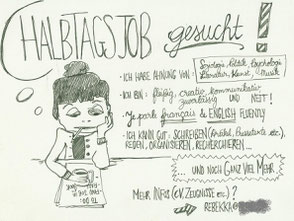 HALBTAGSJOB gesucht!
Soziologie, Politik, Psychologie
- ICH HABE AHNUNG VON: Literatur, Kunst, Musik
- ICH BIN: fleißig, creativ, kommunikativ
zuverlässig UND NETT!
- Je parle français & ENGLISH FLUENTLY
- ICH KANN GUT: SCHREIBEN (Artikel, Pressetexte etc.),
REDEN, ORGANISIEREN, RECHERCHIEREN...
UND NOCH GANZ VIEL MEHR
MEHR INFOS (CV, ZEUGNISSE etc.)?
REBEKKA@
TO DO: